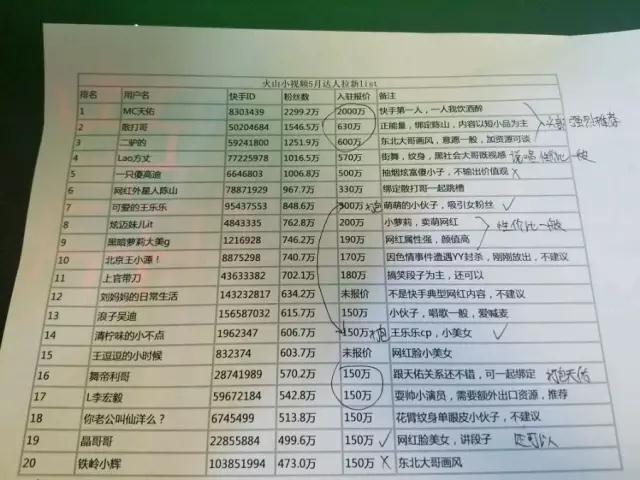 火山小视频5月达人拉新list
排名 用户名 快手ID 粉丝数 入驻报价 备注
1 MC天佑 8303439 2299.2万 2000万 快手第一人，一人我饮酒醉
2 散打哥 50204684 1546.5万 630万 正能量，绑定陈山，内容以短小品为主 强烈推荐
3 二驴的 59241800 1251.9万 600万 东北大哥画风，意愿一般，加资源可谈
4 Lao方丈 77225978 1016.5万 570万 街舞，纹身，黑社会大哥既视感 性价比一般
5 一只傻高迪 6646803 1006.8万 500万 抽烟炫富傻小子，不输出价值观 ×
6 网红外星人陈山 78871929 967.7万 330万 绑定散打哥一起跳槽
7 可爱的王乐乐 95437553 848.6万 300万 萌萌的小伙子，吸引女粉丝 ✓
8 炫迈妹儿it 4843335 762.8万 200万 小萝莉，卖萌网红 性价比一般
9 黑暗萝莉大美g 1216928 746.2万 190万 网红属性强，颜值高
10 北京王小源！ 8875298 740.7万 170万 因色情事件遭遇YY封杀，刚刚放出，不建议
11 上官带刀 43633382 702.1万 180万 搞笑段子为主，还可以
12 刘妈妈的日常生活 143232817 634.2万 未报价 不是快手典型网红内容，不建议
13 浪子吴迪 156587032 615.7万 150万 小伙子，唱歌一般，爱喊麦
14 清柠味的小不点 1962347 606.7万 150万 王乐乐cp，小美女 ✓
15 王逗逗的小时候 832374 603.7万 未报价 网红脸小美女
16 舞帝利哥 28741989 570.2万 150万 跟天佑关系还不错，可一起绑定 打包天佑
17 L李宏毅 59672184 542.8万 150万 耍帅小演员，需要额外出口资源，推荐
18 你老公叫仙洋么？ 6745499 513.8万 150万 花臂纹身单眼皮小伙子，不建议
19 晶哥哥 22855884 499.6万 150万 ✓ 网红脸美女，讲段子 还可以
20 铁岭小辉 103851994 473.0万 150万 × 东北大哥画风